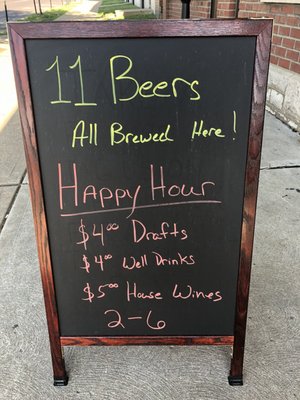 11 Beers
All Brewed Here!
Happy Hour
$4.00 Drafts
$4.00 Well Drinks
$5.00 House Wines
2-6